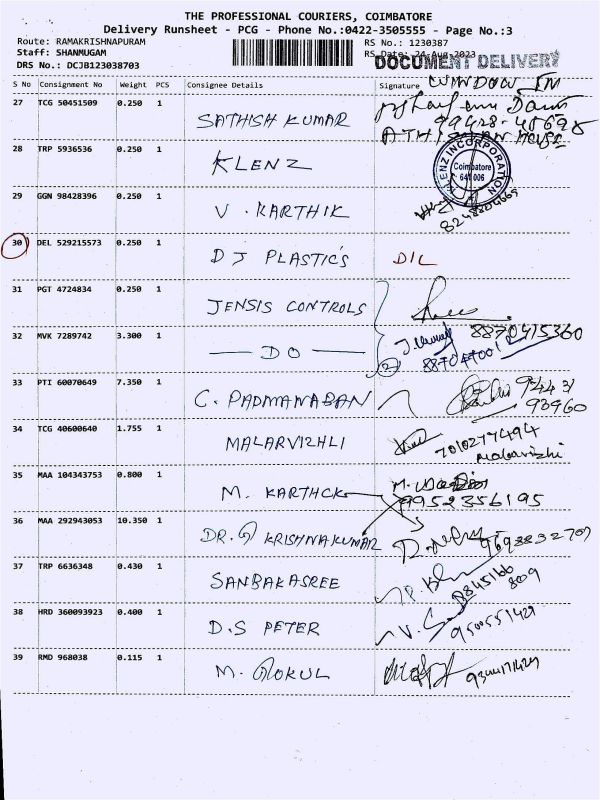 THE PROFESSIONAL COURIERS, COIMBATORE
Delivery Runsheet - PCG - Phone No.:0422-3505555 - Page No.:3
Route: RAMAKRISHNAPURAM
RS No.: 1230387
Staff: SHANMUGAM
RS Date: 24-Aug-2023
DRS No.: DCJB123038703
DOCUMENT DELIVERY
S No Consignment No Weight PCS Consignee Details Signature
27 TCG 50451509 0.250 1 SATHISH KUMAR
28 TRP 5936536 0.250 1 KLENZ
KLENZ INCORPORATION
Coimbatore
641 006
29 GGN 98428396 0.250 1 V. KARTHIK
30 DEL 529215573 0.250 1 DJ PLASTIC'S D/L
31 PGT 4724834 0.250 1 JENSIS CONTROLS
32 MVK 7289742 3.300 1 DO 8870415360
2
33 PTI 60070649 7.350 1 C. PADMANABAN 94431
93960
34 TCG 40600640 1.755 1 MALARVIZHLI
7010277494
Malarvizhi
35 MAA 104343753 0.800 1 M. KARTHCK
9952356195
36 MAA 292943053 10.350 1 DR. G KRISHNAKUMAR
37 TRP 6636348 0.430 1 SANBAKASREE
38 HRD 360093923 0.400 1 D.S PETER
9500551429
39 RMD 968038 0.115 1 M. GOKUL